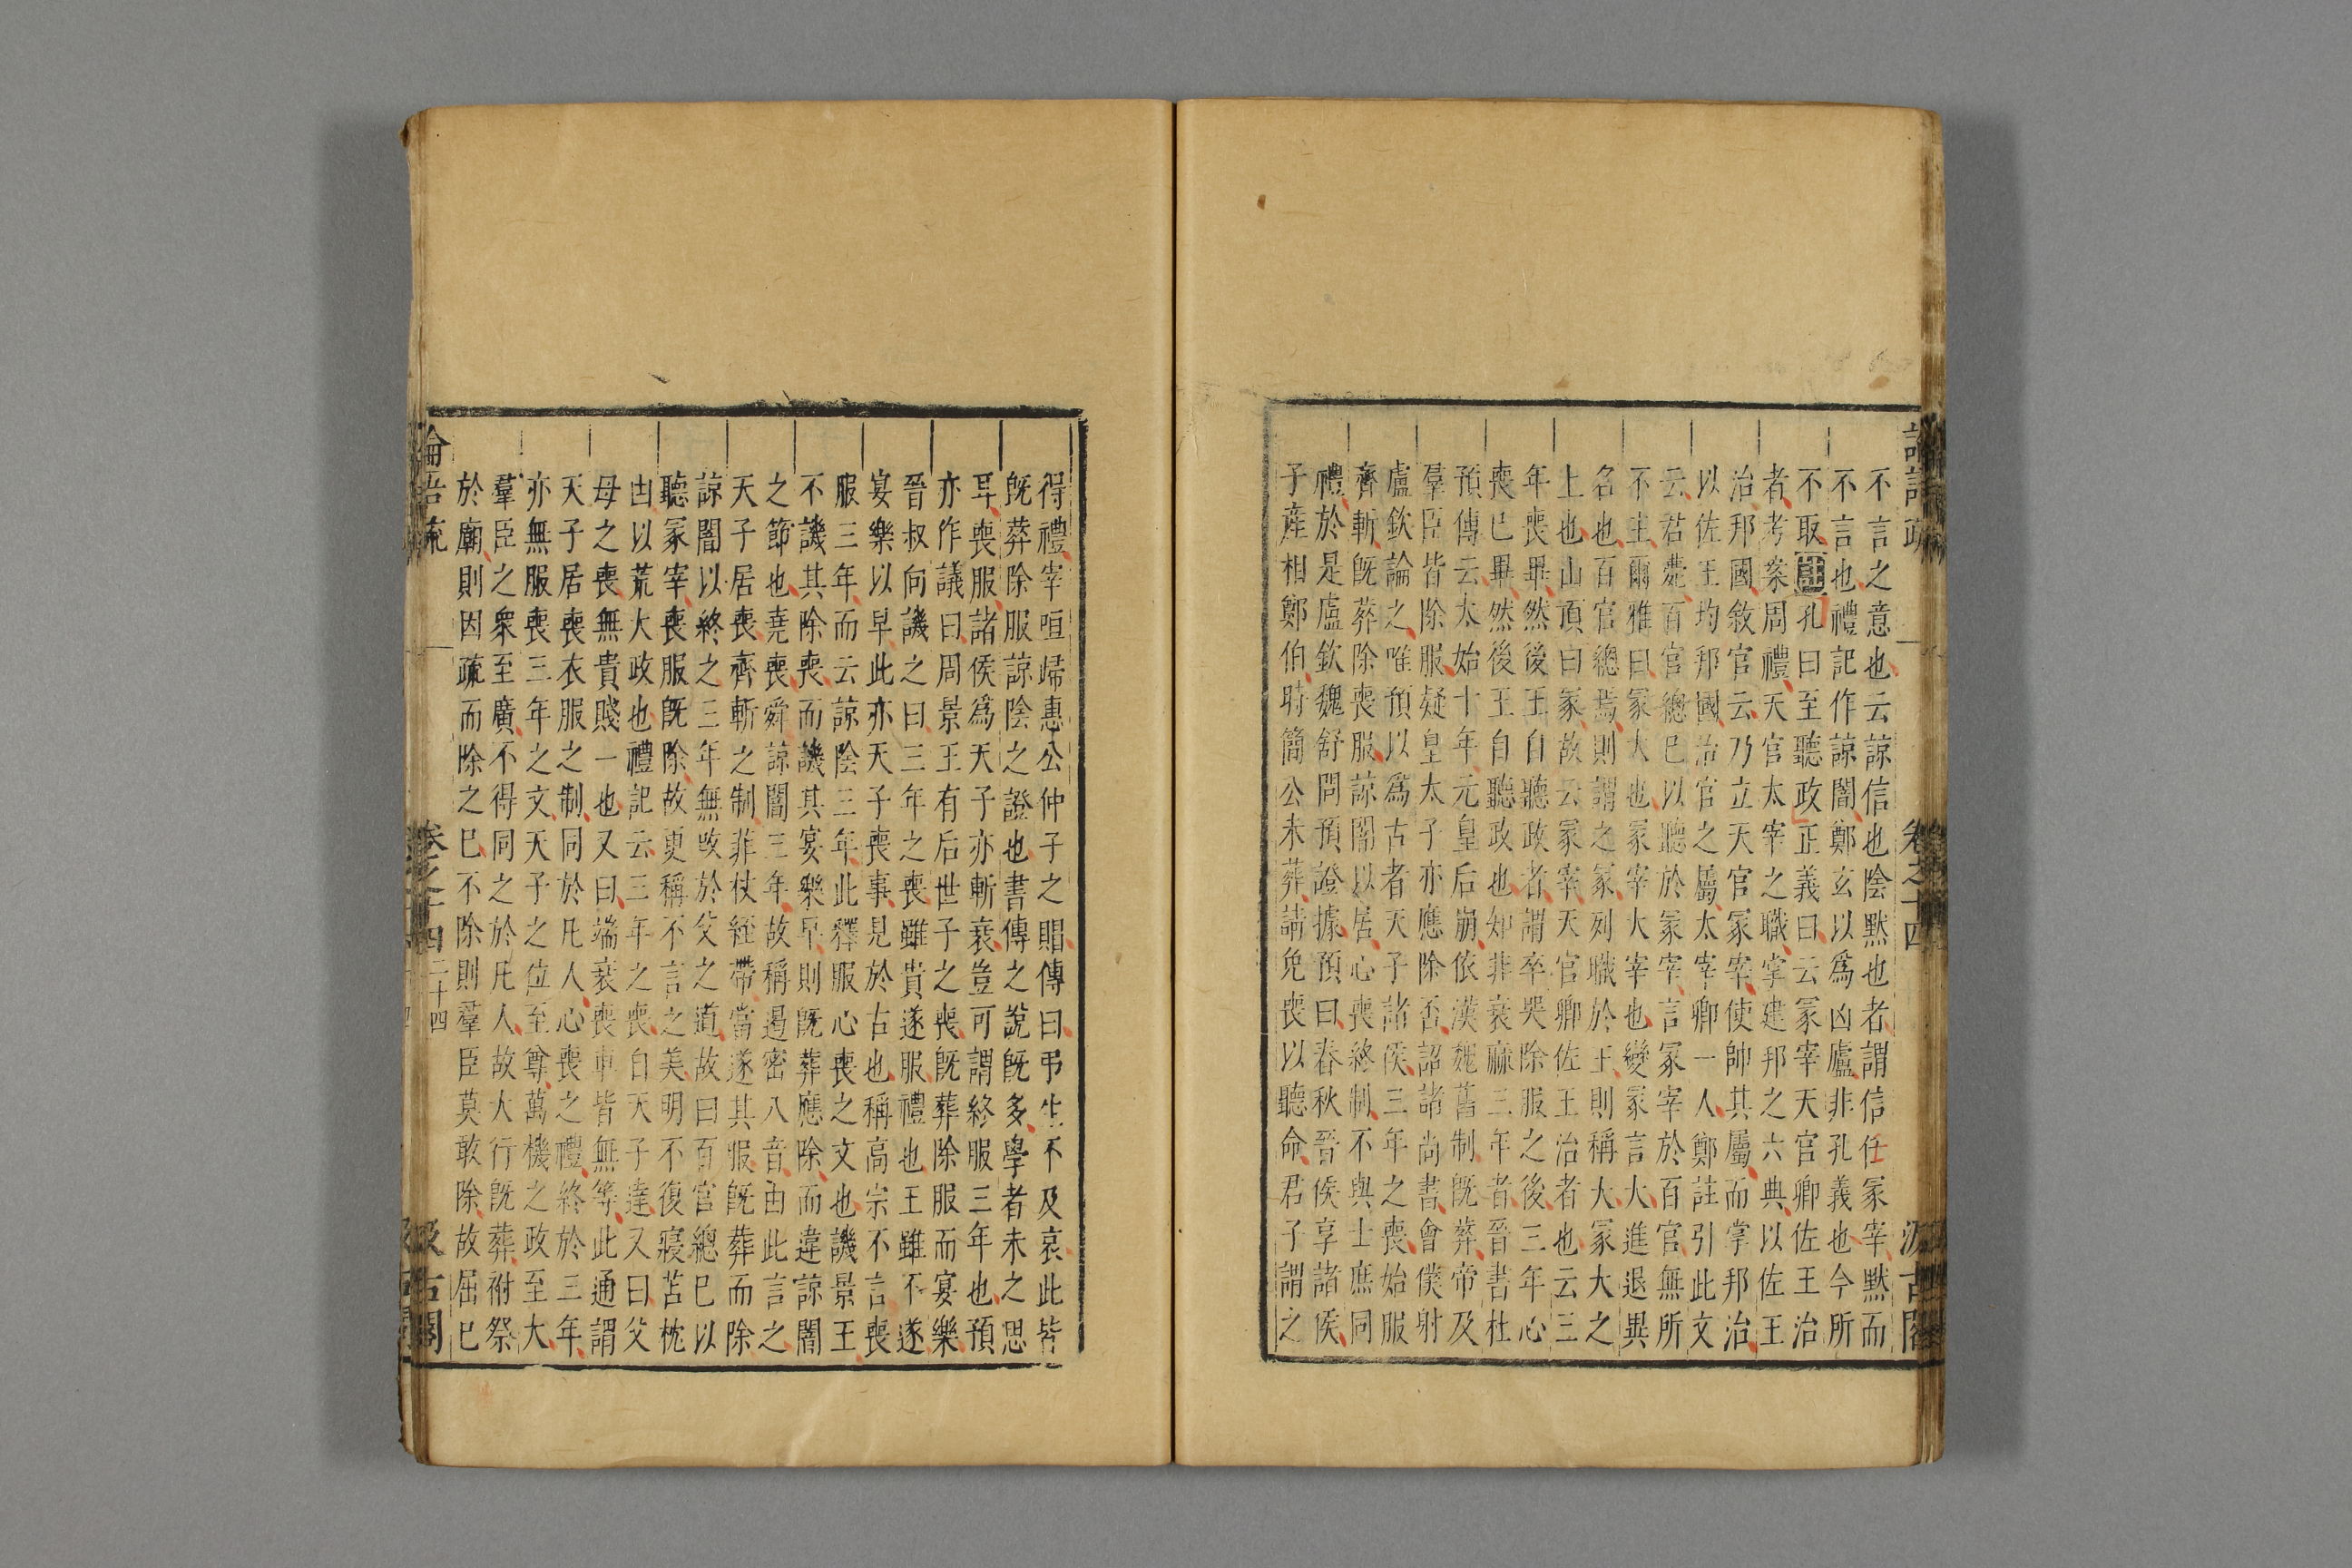 不言之意也云諒信也陰默也者謂信任冢宰默而
不言也禮記作諒闇鄭玄以爲凶廬非孔義也今所
不取註孔曰至聽政正義曰云冢宰天官卿佐王治
者考案周禮天官太宰之職掌建邦之六典以佐王
治邦國敘官云乃立天官冢宰使帥其屬而掌邦治
以佐王均邦國治官之屬太宰卿一人鄭註引此文
云君薨百官總已以聽於冢宰言冢宰於百官無所
不主爾雅曰冢大也冢宰大宰也變冢言大進退異
名也百官總焉則謂之冢列職於王則稱大冢大之
上也山頂曰冢故云冢宰天官卿佐王治者也云三
年喪畢然後王自聽政者謂卒哭除服之後三年心
喪已畢然後王自聽政也知非衰麻三年者晉書杜
預傳云太始十年元皇后崩依漢魏舊制既葬帝及
羣臣皆除服疑皇太子亦應除否詔諸尚書會僕射
盧欽論之唯預以爲古者天子諸侯三年之喪始服
齊斬既葬除喪服諒闇以居心喪終制不與士庶同
禮於是盧欽魏舒問預證據預曰春秋晉侯享諸侯
子產相鄭伯時簡公未葬請免喪以聽命君子謂之
得禮宰咺歸惠公仲子之賵傳曰弔生不及哀此皆
既葬除服諒陰之證也書傳之說既多學者未之思
耳喪服諸侯爲天子亦斬衰豈可謂終服三年也預
亦作議曰周景王有后世子之喪既葬除服而宴樂
晉叔向譏之曰三年之喪雖貴遂服禮也王雖不遂
宴樂以早此亦天子喪事見於古也稱高宗不言喪
服三年而云諒陰三年此釋服心喪之文也譏景王
不譏其除喪而譏其宴樂早則既葬應除而違諒闇
之節也堯喪舜諒闇三年故稱遏密八音由此言之
天子居喪齊斬之制非杖絰帶當遂其服既葬而除
諒闇以終之三年無改於父之道故曰百官總已以
聽冢宰喪服既除故更稱不言之美明不復寢苫枕
凷以荒大政也禮記云三年之喪自天子達又曰父
母之喪無貴賤一也又曰端衰喪車皆無等此通謂
天子居喪衣服之制同於凡人心喪之禮終於三年
亦無服喪三年之文天子之位至尊萬機之政至大
羣臣之衆至廣不得同之於凡人故大行既葬祔祭
於廟則因疏而除之已不除則羣臣莫敢除故屈已
論語疏 卷之十四 二十四 汲古閣